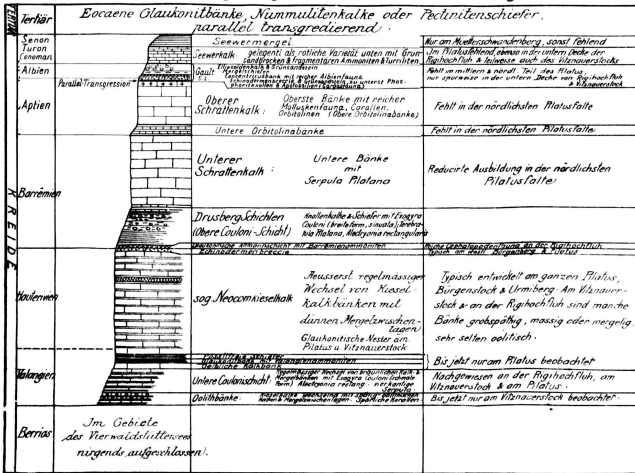 Tertiär
Eocaene Glaukonitbänke, Nummulitenkalke oder Pectinitenschiefer,
parallel transgredierend.
Senon
Turon
Cenoman
Seewermergel
Nur am Muetterschwandenberg, sonst fehlend
Seewerkalk
gelegentl. als rötliche Varietät unten mit Grün-
Sandbrocken & fragmentären Ammoniten & Turriliten
Im Pilatus fehlend, ebenso in der untern Decke der
Rigihochfluh & teilweise auch des Vitznauerstocks
Albien
Gault
s.l.
Parallel-Transgression
Fehlt im mittlern & nördl. Teil des Pilatus,
nur spurweise in der untern Decke von Rigihochfluh
& Vitznauerstock
Aptien
Oberer
Schrattenkalk:
Oberste Bänke mit reicher
Molluskenfauna, Corallen,
Orbitolinen (Obere Orbitolinabänke)
Fehlt in der nördlichsten Pilatusfalte
Untere Orbitolinabänke
Fehlt in der nördlichsten Pilatusfalte
KREIDE
Barrêmien
Unterer
Schrattenkalk:
Untere Bänke
mit
Serpula Pilatana
Reducirte Ausbildung in der nördlichsten
Pilatusfalte
Drusberg Schichten
(Obere Couloni-Schicht)
Knollenkalke & Schiefer mit Exogyra
Couloni (breite Form, sinuata), Terebra-
tula Pilatana, Alectryonia rectangularis
Altmannschicht mit Barrêmienammoniten
Reiche Cephalopodenfauna an der Rigihochfluh
Echinodermenbreccie
Typisch am westl. Bürgenberg & Pilatus
Hauterivien
sog. Neocomkieselkalk
Aeusserst regelmässiger
Wechsel von Kiesel-
kalkbänken mit
dünnen Mergelzwischen-
lagen
Glaukonitische Nester am
Pilatus u Vitznauerstock
Typisch entwickelt am ganzen Pilatus,
Bürgenstock & Urmiberg. Am Vitznauer-
stock & an der Rigihochfluh sind manche
Bänke grobspäthig, massig oder mergelig,
sehr selten oolitisch.
Valangien
Glaukonitbank mit Valangienammoniten
Gelbliche Kalkbank
Bis jetzt nur am Pilatus beobachtet
Untere Coulonischicht:
Regelmässiger Wechsel von bräunlichen Kalk- &
Mergelbänken mit Exogyra Couloni (schmale
Form) Alectryonia rectang. vierkantige
Serpula
Nachgewiesen an der Rigihochfluh, am
Vitznauerstock & am Pilatus.
Oolithbänke:
Bis jetzt nur am Vitznauerstock beobachtet.
Berrias
Im Gebiete
des Vierwaldstättersees
nirgends aufgeschlossen.